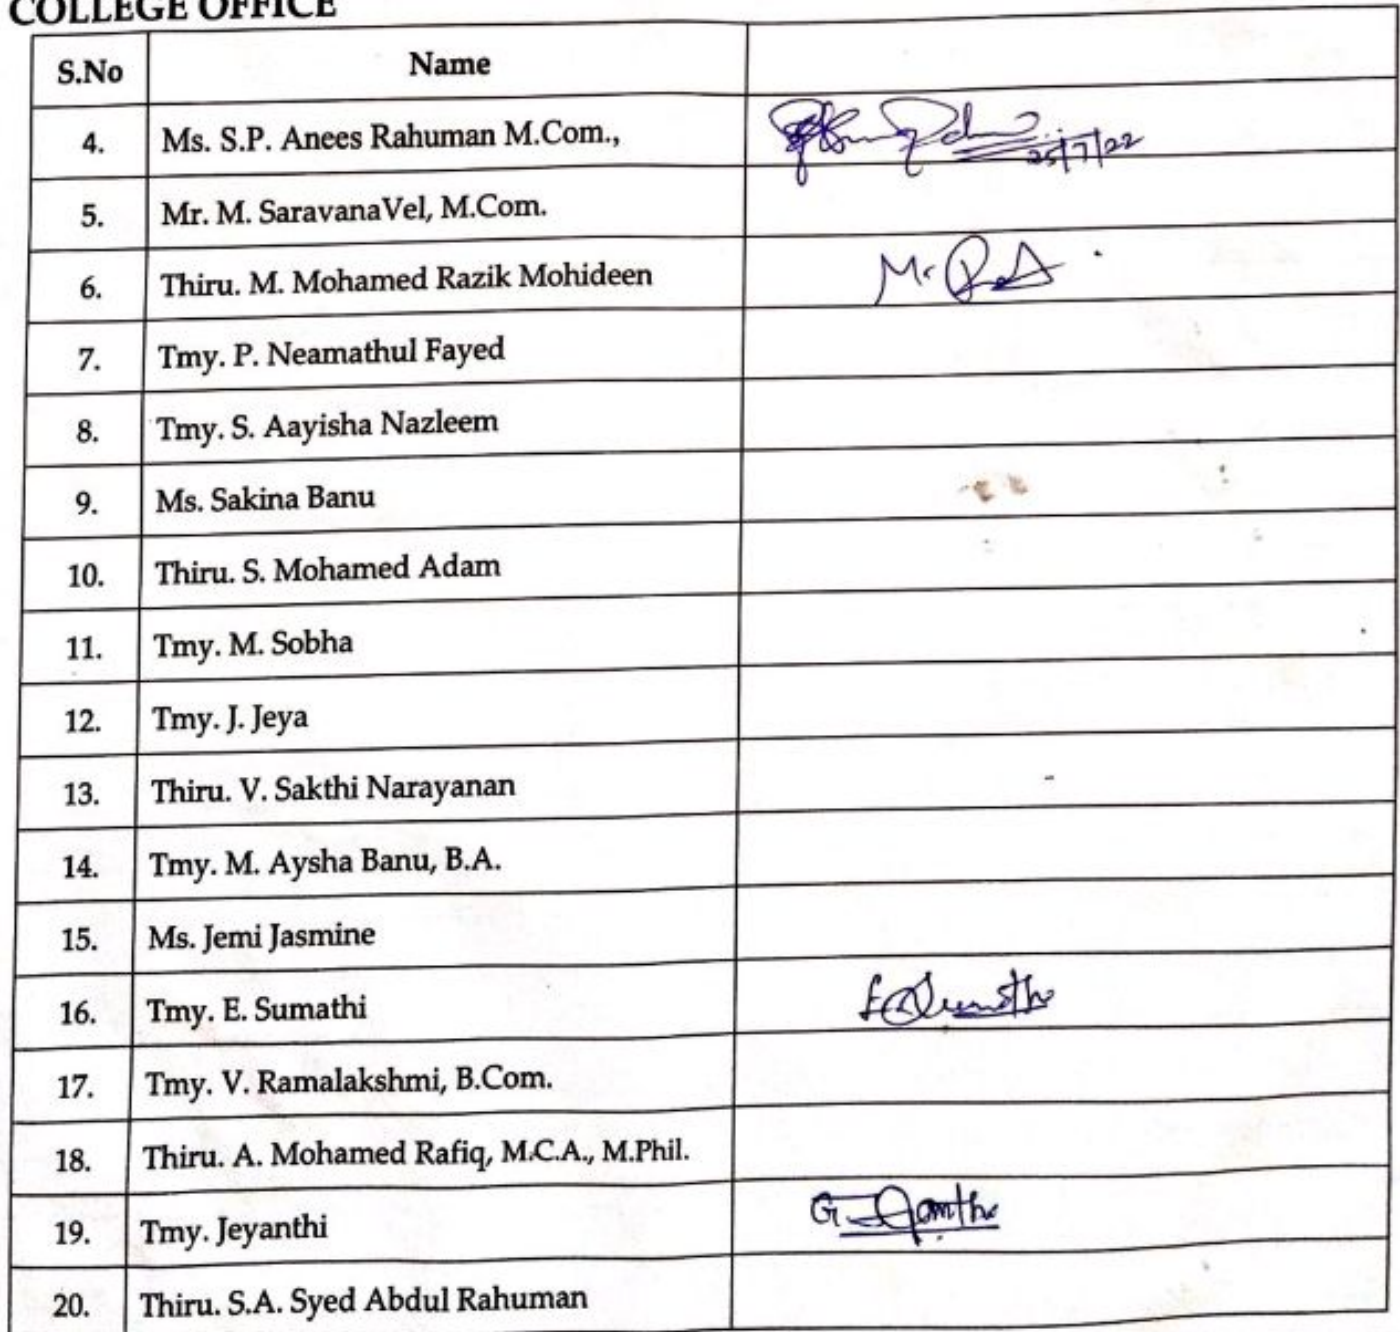 COLLEGE OFFICE
S.No Name
4. Ms. S.P. Anees Rahuman M.Com., 25/7/22
5. Mr. M. SaravanaVel, M.Com.
6. Thiru. M. Mohamed Razik Mohideen M.
7. Tmy. P. Neamathul Fayed
8. Tmy. S. Aayisha Nazleem
9. Ms. Sakina Banu
10. Thiru. S. Mohamed Adam
11. Tmy. M. Sobha
12. Tmy. J. Jeya
13. Thiru. V. Sakthi Narayanan
14. Tmy. M. Aysha Banu, B.A.
15. Ms. Jemi Jasmine
16. Tmy. E. Sumathi E. Sumathi
17. Tmy. V. Ramalakshmi, B.Com.
18. Thiru. A. Mohamed Rafiq, M.C.A., M.Phil.
19. Tmy. Jeyanthi G.
20. Thiru. S.A. Syed Abdul Rahuman